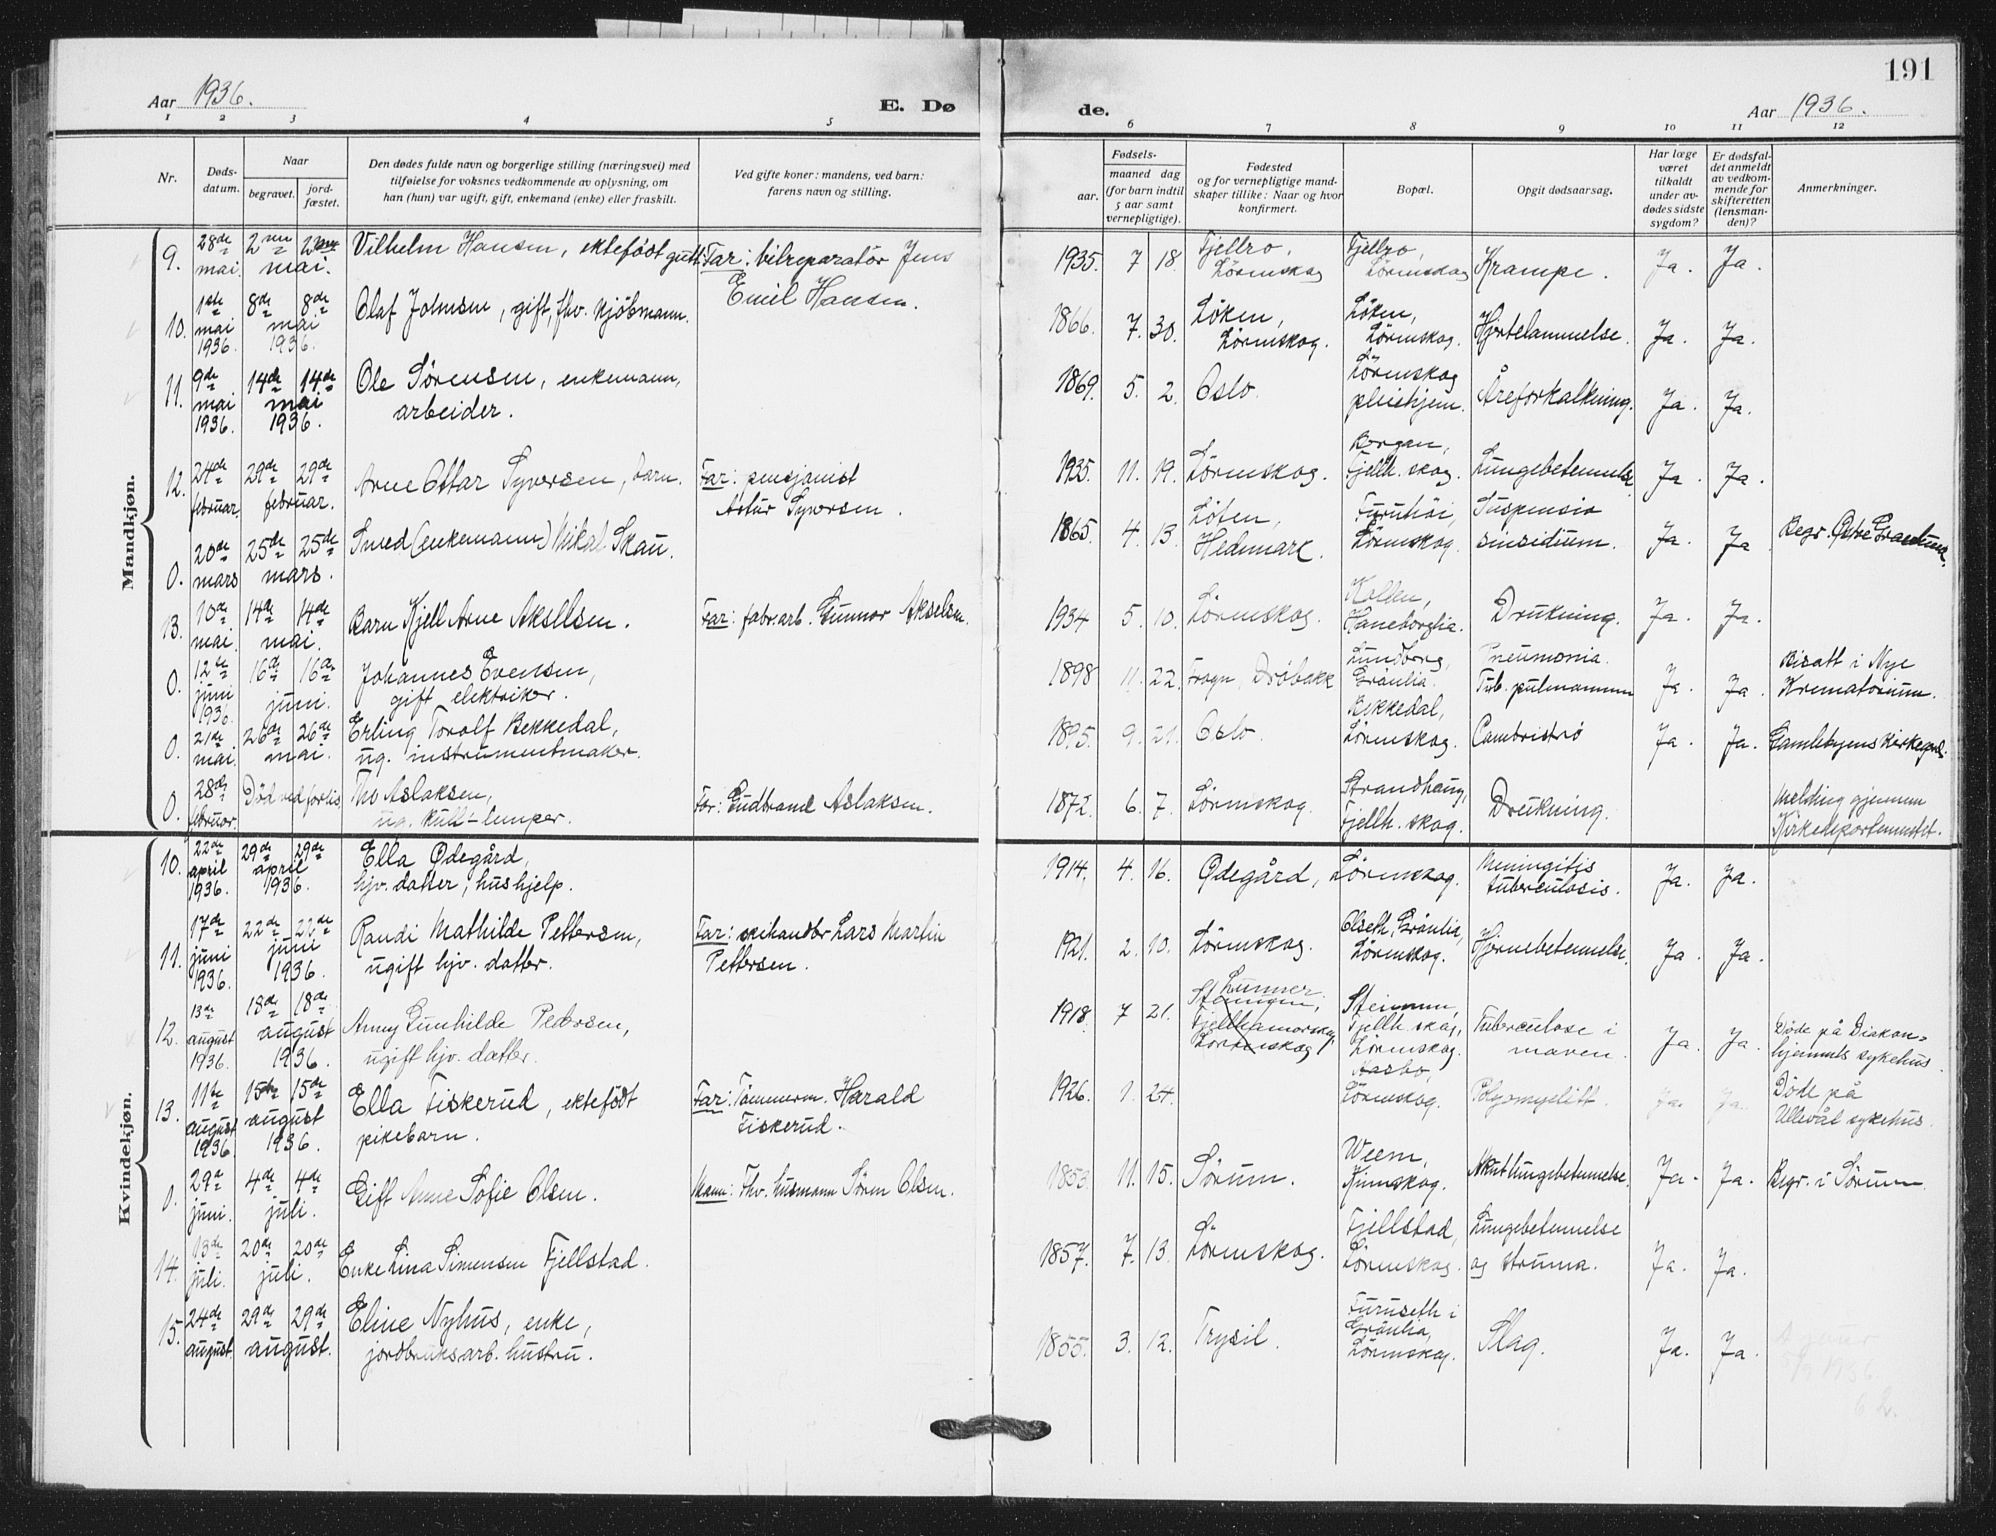 191
Aar 1936. E. Dø de. Aar 1936.
1 2 3 4 5 6 7 8 9 10 11 12
Nr.
Døds-
datum.
Naar
begravet.
jord-
fæstet.
Den dødes fulde navn og borgerlige stilling (næringsvei) med
tilføielse for voksnes vedkommende av oplysning, om
han (hun) var ugift, gift, enkemand (enke) eller fraskilt.
Ved gifte koner: mandens, ved barn:
farens navn og stilling.
Fødsels-
aar.
maaned dag
(for barn indtil
5 aar samt
vernepligtige).
Fødested
og for vernepligtige mand-
skaper tillike: Naar og hvor
konfirmert.
Bopæl.
Opgit dødsaarsag.
Har læge
været
tilkaldt
under av-
dødes sidste
sygdom?
Er dødsfal-
det anmeldt
av vedkom-
mende for
skifteretten
(lensman-
den)?
Anmerkninger.
Mandkjøn.
9. 28de mai. 2 mai. Vilhelm Hansen, ektefödt gutt. Far: bilreparatör Jens
Emil Hansen. 1935. 7 18. Fjellro, Lörenskog Fjellro, Lörenskog Krampe. Ja. Ja.
10. 1ste mai 1936. 8de 8de mai 1936. Olaf Johnsen, gift, fhv. kjöbmann. 1866. 7. 30. Löken, Lörenskog. Löken, Lörenskog. Hjertelammelse. Ja. Ja.
11. 9de mai 1936. 14de 14de mai 1936. Ole Sörensen, enkemann,
arbeider. 1869. 5. 2. Oslo. Lörenskog pleiehjem. Åreforkalkning. Ja. Ja.
12. 24de februar. 29de 29de februar. Arne Ottar Syversen, barn. Far: pensjonist
Syversen. 1935. 11. 19. Lörenskog. Borgan, Fjellh. skog. Lungebetennelse Ja. Ja.
0. 20de mars 25de 25de mars. Smed (enkemann) Mikal Skau. 1865. 4. 13. Löten, Hedemark. Furuhöi, Lörenskog. Suspensio Ja. Ja Begr. Østre
13. 10de mai. 14de 14de mai. Barn Kjell Arne Akselsen. Far: fabr.arb. Gunnar Akselsen. 1934 5. 10. Lörenskog. Kollen, Haneborglia. Drukning. Ja. Ja.
0. 12te juni 1936. 16de 16de juni. Johannes Evensen,
gift elektriker. 1898 11. 22. Frogn, Dröbakk Lundborg, Grönlia. Pneumonia. Tub. pulmonum Ja. Ja. Bisatt i Nye
Krematorium.
0. 21de mai. 26de 26de mai. Erling Torolf Bekkedal,
ug. instrumentmaker. 1895. 9. 21. Oslo. Bekkedal, Lörenskog. Ja. Ja. Gamlebyens kirkegård.
0. 28de februar. Död ved forlis Aslaksen,
ug. kull-lemper. Far: Gudbrand Aslaksen. 1872. 6. 7. Lörenskog. Strandhaug, Fjellh. skog. Drukning. Melding gjennem
Kirkedepartementet.
Kvindekjøn.
10. 22de april 1936. 29de 29de april 1936. Ella Ødegård,
hjv. datter, hushjelp. 1914. 4. 16. Ødegård, Lörenskog. Meningitis tuberculosis. Ja. Ja.
11. 17de juni 1936. 22de 22de juni 1936. Randi Mathilde Pettersen,
ugift hjv. datter. Far: Lars Martin
Pettersen. 1921. 2. 10. Lörenskog. Olseth, Grönlia, Lörenskog. Hjernebetennelse. Ja. Ja.
12. 13de august 1936. 18de 18de august 1936. Anny Gunhilde Pedersen,
ugift hjv. datter. 1918. 7 21. Lunner Fjellhamarskog, Lörenskog Fjellh. skog, Lörenskog. Tuberculose i maven. Ja. Ja. Döde på Diakon-
hjemmets sykehus.
13. 11te august 1936. 15de 15de august 1936. Ella Fiskerud, ektefödt
pikebarn. Far: Tömmerm. Harald
Fiskerud. 1926. 1. 24. Aasbo, Lörenskog. Polyomyelitt. Ja. Ja. Döde på
Ullevål sykehus.
0. 29de juni. 4de 4de juli. Gift Anne Sofie Olsen. Mann: Fhv. husmann Sören Olsen. 1853. 11. 15. Sörum. Akutlungebetennelse. Ja. Ja. Begr. i Sörum
14. 13de juli. 20de 20de juli. Enke Lina Simensen Fjellstad. 1857. 7. 13. Lörenskog. Fjellstad, Lörenskog. Lungebetennelse og struma. Ja. Ja.
15. 24de august 29de 29de august. Eline Nyhus, enke,
jordbruksarb. hustru. 1855. 3. 12. Trysil. Furuseth i Grönlia, Lörenskog. Slag. Ja. Ja.